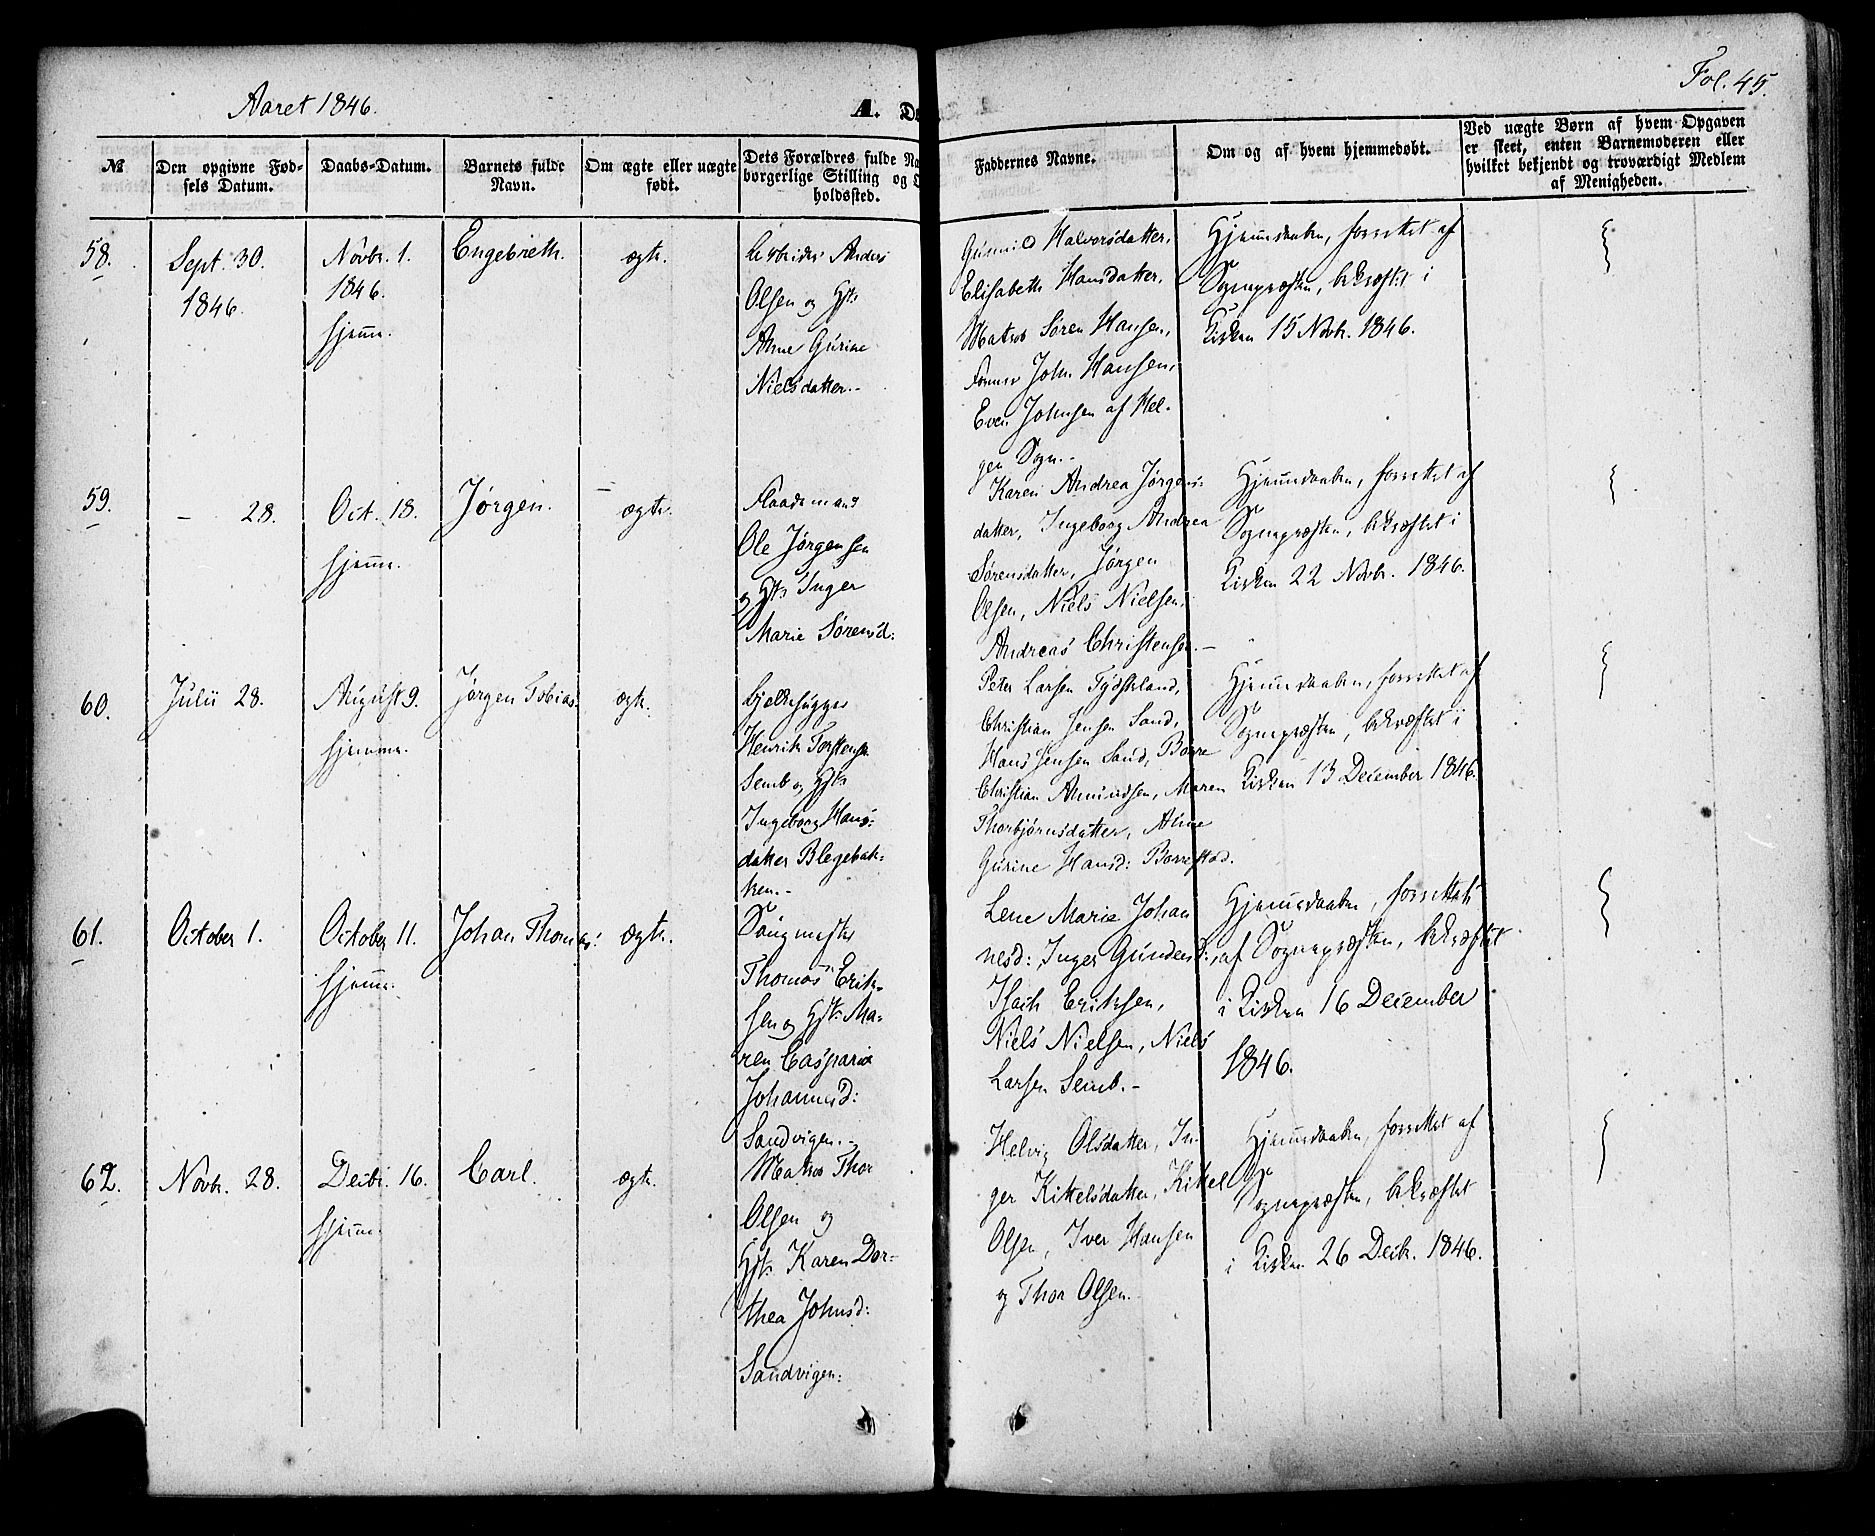 Aaret 1846.
A. Do
Fol. 45.
№
Den opgivne Fød-
sels Datum.
Daabs-Datum.
Barnets fulde
Navn.
Om ægte eller uægte
født.
Dets Forældres fulde Na
borgerlige Stilling og O
holdssted.
Faddernes Navne.
Om og af hvem hjemmedøbt.
Ved uægte Børn af hvem Opgaven
er skeet, enten Barnemoderen eller
hvilket bekjendt og troværdigt Medlem
af Menigheden.
58.
Sept. 30.
1846.
Novbr. 1.
1846.
hjemme.
Engebreth.
ægte.
Arbeider Anders
Olsen og Hst:
Anne Gurine
Nielsdatter.-
Gunnild Halvorsdatter,
Elisabeth Hansdatter,
Matros Søren Hansen,
Former John Hansen,
Even Johnsen af Hel-
gen Sogn.-
Hjemmedaaben, forrettet af
Sognepræsten, bekræftet i
Kirken 15 Novbr. 1846.
59.
- 28.
Oct. 18.
hjemme.
Jørgen.
ægte.
Flaademand
Ole Jørgensen
og Hst: Inger
Marie Sørensd:
Karen Andrea Jørgens-
datter, Ingeborg Andrea
Sørensdatter, Jørgen
Olsen, Niels Nielsen,
Andreas Christensen.-
Hjemmedaaben, forrettet af
Sognepræsten, bekræftet i
Kirken 22 Novbr. 1846.
60.
Julii 28.
August 9.
hjemme.
Jørgen Tobias.
ægte.
Bjelkehugger
Henrik Torstensen
Semb og Hst:
Ingeborg Hans-
datter Blegebak-
ken.-
Peter Larsen Tydskland,
Christian Jensen Sand,
Hans Jensen Sand, Borre
Christian Amundsen, Maren
Thorbjørnsdatter, Anne
Gurine Hansd: Borrestad.
Hjemmedaaben, forrettet af
Sognepræsten, bekræftet i
Kirken 13 December 1846.
61.
October 1.
October 11.
hjemme.
Johan Thomas.
ægte.
Saugmester
Thomas Erik-
sen og Hst: Ma-
ren Casparia
Johannesd:
Sandvigen.-
Lene Marie Johan
nesd:, Inger Gundersd:,
Isach Eriksen,
Niels Nielsen, Niels
Larsen Semb.-
Hjemmedaaben, forrettet
af Sognepræsten, bekræftet
i Kirken 16 December
1846.
62.
Novbr. 28.
Decbr. 16.
hjemme.
Carl.
ægte.
Matros Thor
Olsen og
Hst: Karen Dor-
thea Johnsd:
Sandvigen:
Helvig Olsdatter, In-
ger Kittelsdatter, Kittel
Olsen, Iver Hansen
og Thor Olsen.
Hjemmedaaben, forrettet af
Sognepræsten, bekræftet
i Kirken 26 Decbr. 1846.